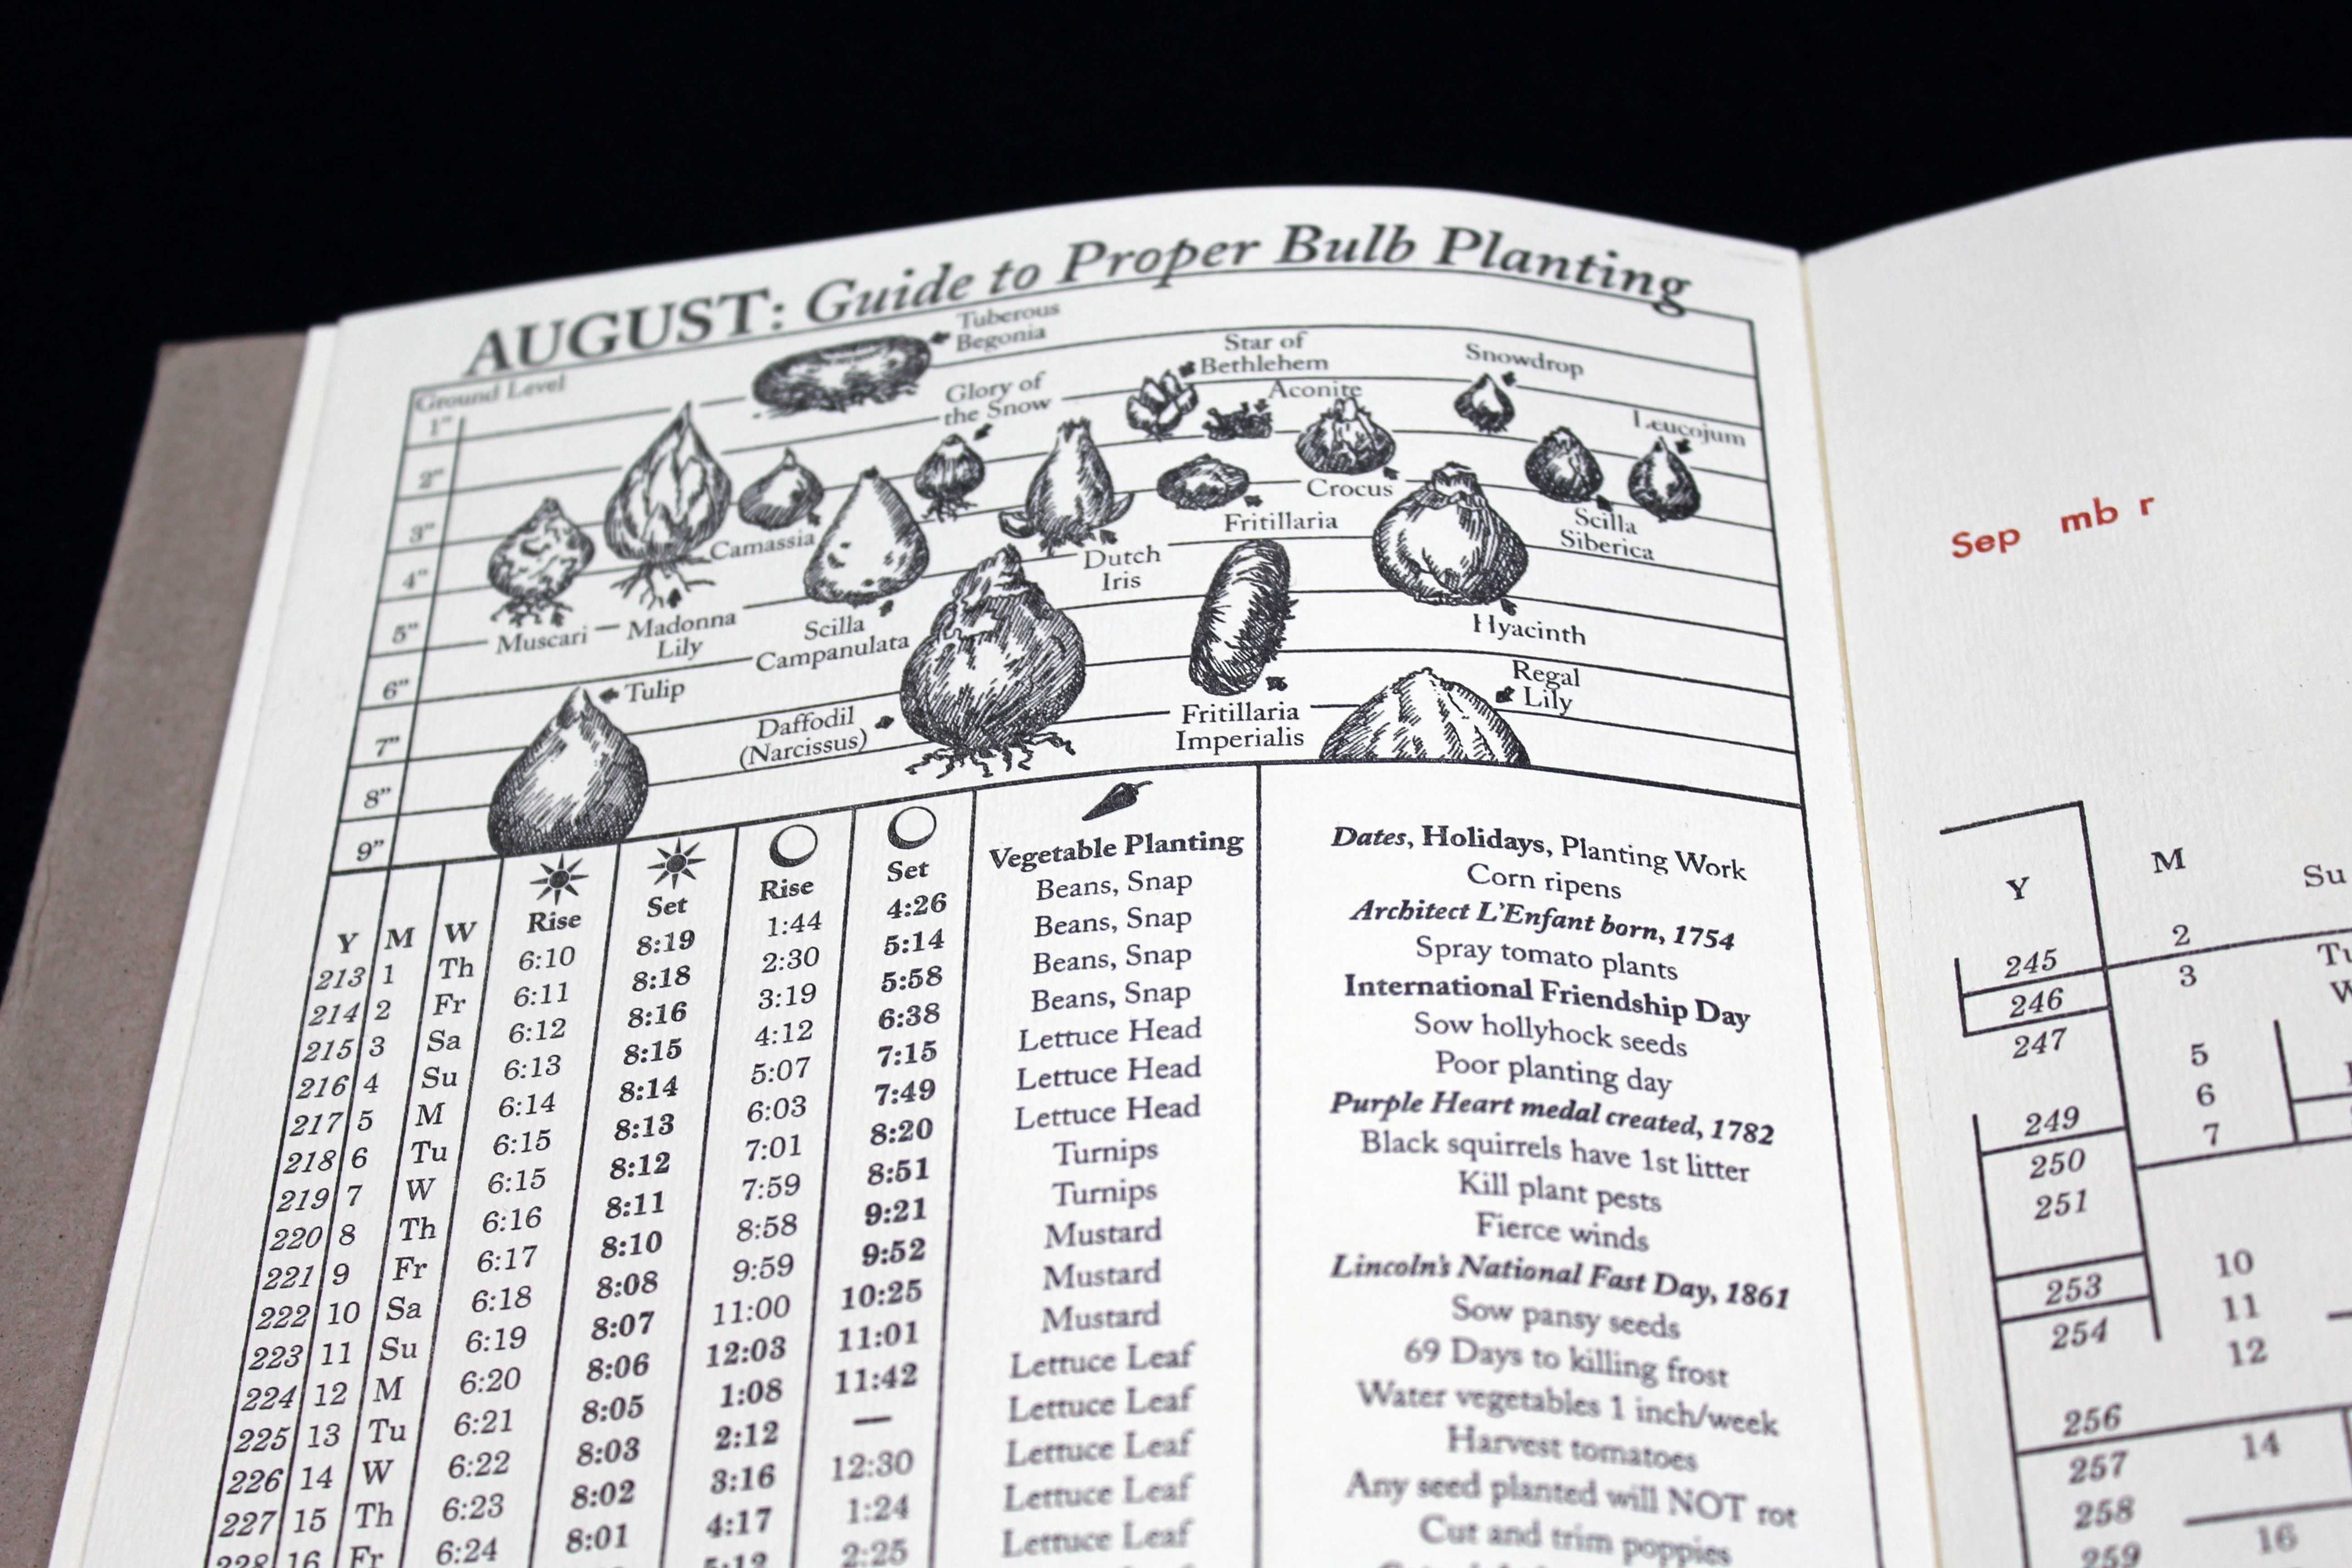 AUGUST: Guide to Proper Bulb Planting
Ground Level
1"
2"
3"
4"
5"
6"
7"
8"
9"
Tuberous
Begonia
Glory of
the Snow
Star of
Bethlehem
Aconite
Snowdrop
Leucojum
Crocus
Camassia
Fritillaria
Scilla
Siberica
Dutch
Iris
Muscari
Madonna
Lily
Scilla
Campanulata
Hyacinth
Tulip
Daffodil
(Narcissus)
Fritillaria
Imperialis
Regal
Lily
Y M W Rise Set Rise Set Vegetable Planting Dates, Holidays, Planting Work
213 1 Th 6:10 8:19 1:44 4:26 Beans, Snap Corn ripens
214 2 Fr 6:11 8:18 2:30 5:14 Beans, Snap Architect L'Enfant born, 1754
215 3 Sa 6:12 8:16 3:19 5:58 Beans, Snap Spray tomato plants
216 4 Su 6:13 8:15 4:12 6:38 Beans, Snap International Friendship Day
217 5 M 6:14 8:14 5:07 7:15 Lettuce Head Sow hollyhock seeds
218 6 Tu 6:15 8:13 6:03 7:49 Lettuce Head Poor planting day
219 7 W 6:15 8:12 7:01 8:20 Lettuce Head Purple Heart medal created, 1782
220 8 Th 6:16 8:11 7:59 8:51 Turnips Black squirrels have 1st litter
221 9 Fr 6:17 8:10 8:58 9:21 Turnips Kill plant pests
222 10 Sa 6:18 8:08 9:59 9:52 Mustard Fierce winds
223 11 Su 6:19 8:07 11:00 10:25 Mustard Lincoln's National Fast Day, 1861
224 12 M 6:20 8:06 12:03 11:01 Mustard Sow pansy seeds
225 13 Tu 6:21 8:05 1:08 11:42 Lettuce Leaf 69 Days to killing frost
226 14 W 6:22 8:03 2:12 — Lettuce Leaf Water vegetables 1 inch/week
227 15 Th 6:23 8:02 3:16 12:30 Lettuce Leaf Harvest tomatoes
228 16 Fr 6:24 8:01 4:17 1:24 Lettuce Leaf Any seed planted will NOT rot
5:12 2:25 Lettuce Leaf Cut and trim poppies
Sep mb r
Y M Su
245 2
246 3 Tu
247
5
249 6
250 7
251
253 10
254 11
12
256
257 14
258
259 16